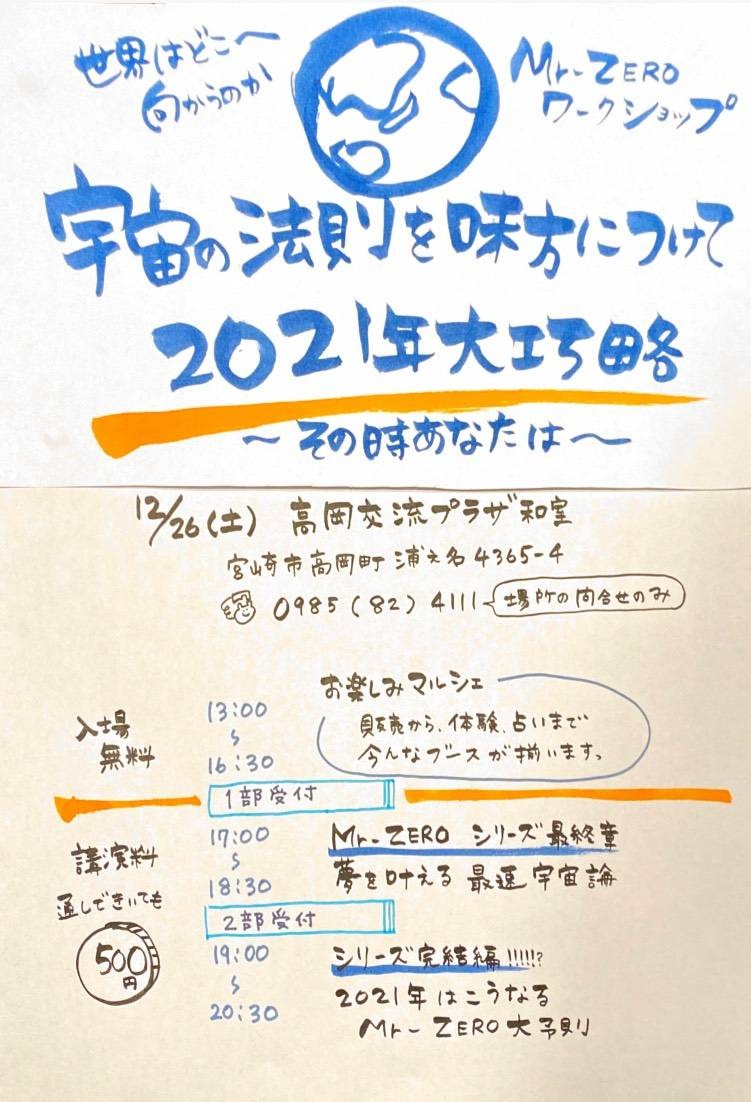 世界はどこへ
向かうのか
Mr-ZERO
ワークショップ
宇宙の法則を味方につけて
2021年大攻略
～その時あなたは～
12/26(土) 高岡交流プラザ和室
宮崎市高岡町浦之名4365-4
0985(82)4111
場所の問合せのみ
入場
無料
13:00
～
16:30
お楽しみマルシェ
販売から、体験、占いまで
今んなブースが揃います。
1部受付
講演料
通しできいても
500
円
17:00
～
18:30
Mr-ZERO シリーズ最終章
夢を叶える 最速宇宙論
2部受付
19:00
～
20:30
シリーズ完結編!!!!!?
2021年はこうなる
Mr-ZERO大予則